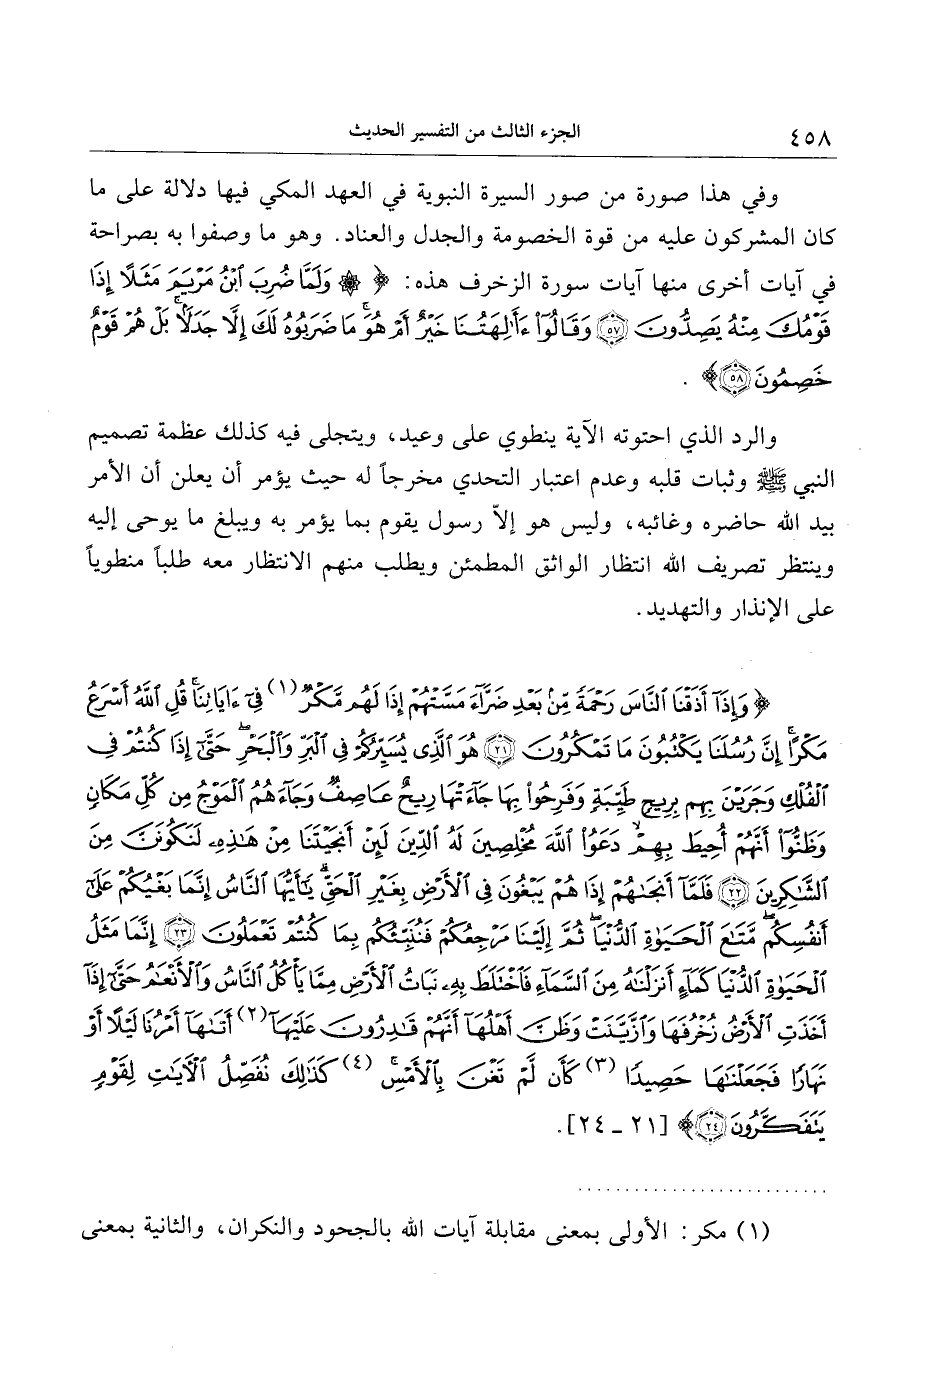 ٤٥٨
الجزء الثالث من التفسير الحديث
وفي هذا صورة من صور السيرة النبوية في العهد المكي فيها دلالة على ما
كان المشركون عليه من قوة الخصومة والجدل والعناد. وهو ما وصفوا به بصراحة
في آيات أخرى منها آيات سورة الزخرف هذه: ﴿ ۞ وَلَمَّا ضُرِبَ ٱبْنُ مَرْيَمَ مَثَلًا إِذَا
قَوْمُكَ مِنْهُ يَصِدُّونَ ﴿٥٧﴾ وَقَالُوٓا۟ ءَأَٰلِهَتُنَا خَيْرٌ أَمْ هُوَ ۚ مَا ضَرَبُوهُ لَكَ إِلَّا جَدَلًۢا ۚ بَلْ هُمْ قَوْمٌ
خَصِمُونَ ﴿٥٨﴾ ﴾ .
والرد الذي احتوته الآية ينطوي على وعيد، ويتجلى فيه كذلك عظمة تصميم
النبي ﷺ وثبات قلبه وعدم اعتبار التحدي مخرجاً له حيث يؤمر أن يعلن أن الأمر
بيد الله حاضره وغائبه، وليس هو إلاّ رسول يقوم بما يؤمر به ويبلغ ما يوحى إليه
وينتظر تصريف الله انتظار الواثق المطمئن ويطلب منهم الانتظار معه طلباً منطوياً
على الإنذار والتهديد.
﴿ وَإِذَآ أَذَقْنَا ٱلنَّاسَ رَحْمَةً مِّنۢ بَعْدِ ضَرَّآءَ مَسَّتْهُمْ إِذَا لَهُم مَّكْرٌ (١) فِىٓ ءَايَاتِنَا ۚ قُلِ ٱللَّهُ أَسْرَعُ
مَكْرًا ۚ إِنَّ رُسُلَنَا يَكْتُبُونَ مَا تَمْكُرُونَ ﴿٢١﴾ هُوَ ٱلَّذِى يُسَيِّرُكُمْ فِى ٱلْبَرِّ وَٱلْبَحْرِ ۖ حَتَّىٰٓ إِذَا كُنتُمْ فِى
ٱلْفُلْكِ وَجَرَيْنَ بِهِم بِرِيحٍ طَيِّبَةٍ وَفَرِحُوا۟ بِهَا جَآءَتْهَا رِيحٌ عَاصِفٌ وَجَآءَهُمُ ٱلْمَوْجُ مِن كُلِّ مَكَانٍ
وَظَنُّوٓا۟ أَنَّهُمْ أُحِيطَ بِهِمْ ۙ دَعَوُا۟ ٱللَّهَ مُخْلِصِينَ لَهُ ٱلدِّينَ لَئِنْ أَنجَيْتَنَا مِنْ هَٰذِهِۦ لَنَكُونَنَّ مِنَ
ٱلشَّٰكِرِينَ ﴿٢٢﴾ فَلَمَّآ أَنجَىٰهُمْ إِذَا هُمْ يَبْغُونَ فِى ٱلْأَرْضِ بِغَيْرِ ٱلْحَقِّ ۗ يَٰٓأَيُّهَا ٱلنَّاسُ إِنَّمَا بَغْيُكُمْ عَلَىٰٓ
أَنفُسِكُم ۖ مَّتَٰعَ ٱلْحَيَوٰةِ ٱلدُّنْيَا ۖ ثُمَّ إِلَيْنَا مَرْجِعُكُمْ فَنُنَبِّئُكُم بِمَا كُنتُمْ تَعْمَلُونَ ﴿٢٣﴾ إِنَّمَا مَثَلُ
ٱلْحَيَوٰةِ ٱلدُّنْيَا كَمَآءٍ أَنزَلْنَٰهُ مِنَ ٱلسَّمَآءِ فَٱخْتَلَطَ بِهِۦ نَبَاتُ ٱلْأَرْضِ مِمَّا يَأْكُلُ ٱلنَّاسُ وَٱلْأَنْعَٰمُ حَتَّىٰٓ إِذَآ
أَخَذَتِ ٱلْأَرْضُ زُخْرُفَهَا وَٱزَّيَّنَتْ وَظَنَّ أَهْلُهَآ أَنَّهُمْ قَٰدِرُونَ عَلَيْهَآ (٢) أَتَىٰهَآ أَمْرُنَا لَيْلًا أَوْ
نَهَارًا فَجَعَلْنَٰهَا حَصِيدًا (٣) كَأَن لَّمْ تَغْنَ بِٱلْأَمْسِ ۚ (٤) كَذَٰلِكَ نُفَصِّلُ ٱلْءَايَٰتِ لِقَوْمٍ
يَتَفَكَّرُونَ ﴿٢٤﴾ ﴾ [٢١ ـ ٢٤].
(١) مكر: الأولى بمعنى مقابلة آيات الله بالجحود والنكران، والثانية بمعنى